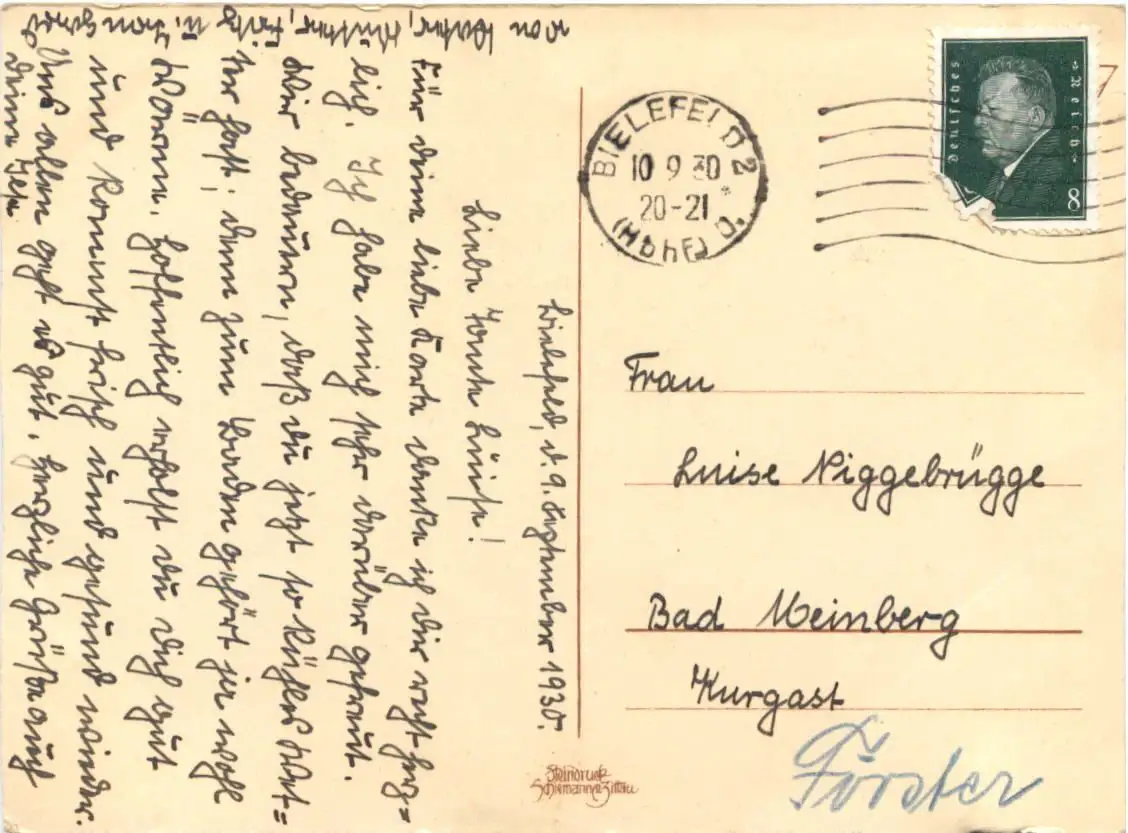 Bielefeld, d. 9. September 1930.
Liebe Tante Luise!
Für deine liebe Karte danke ich dir recht herz=
lich. Ich habe mich sehr darüber gefreut.
Wir bedauern, daß du jetzt so kühles Wet=
ter hast; denn zum Baden gehört ja wohl
Wärme. Hoffentlich erholst du dich gut
und kommst frisch und gesund wieder.
Uns allen geht es gut. Herzliche Grüße auch
von Vater, Mutter, Fritz u.
deine
BIELEFELD 2
10 9 30
20-21
(Hbhf)
Deutsches Reich
8
Frau
Luise Niggebrügge
Bad Meinberg
Kurgast
Förster
Steindruck
Schiemann Zittau